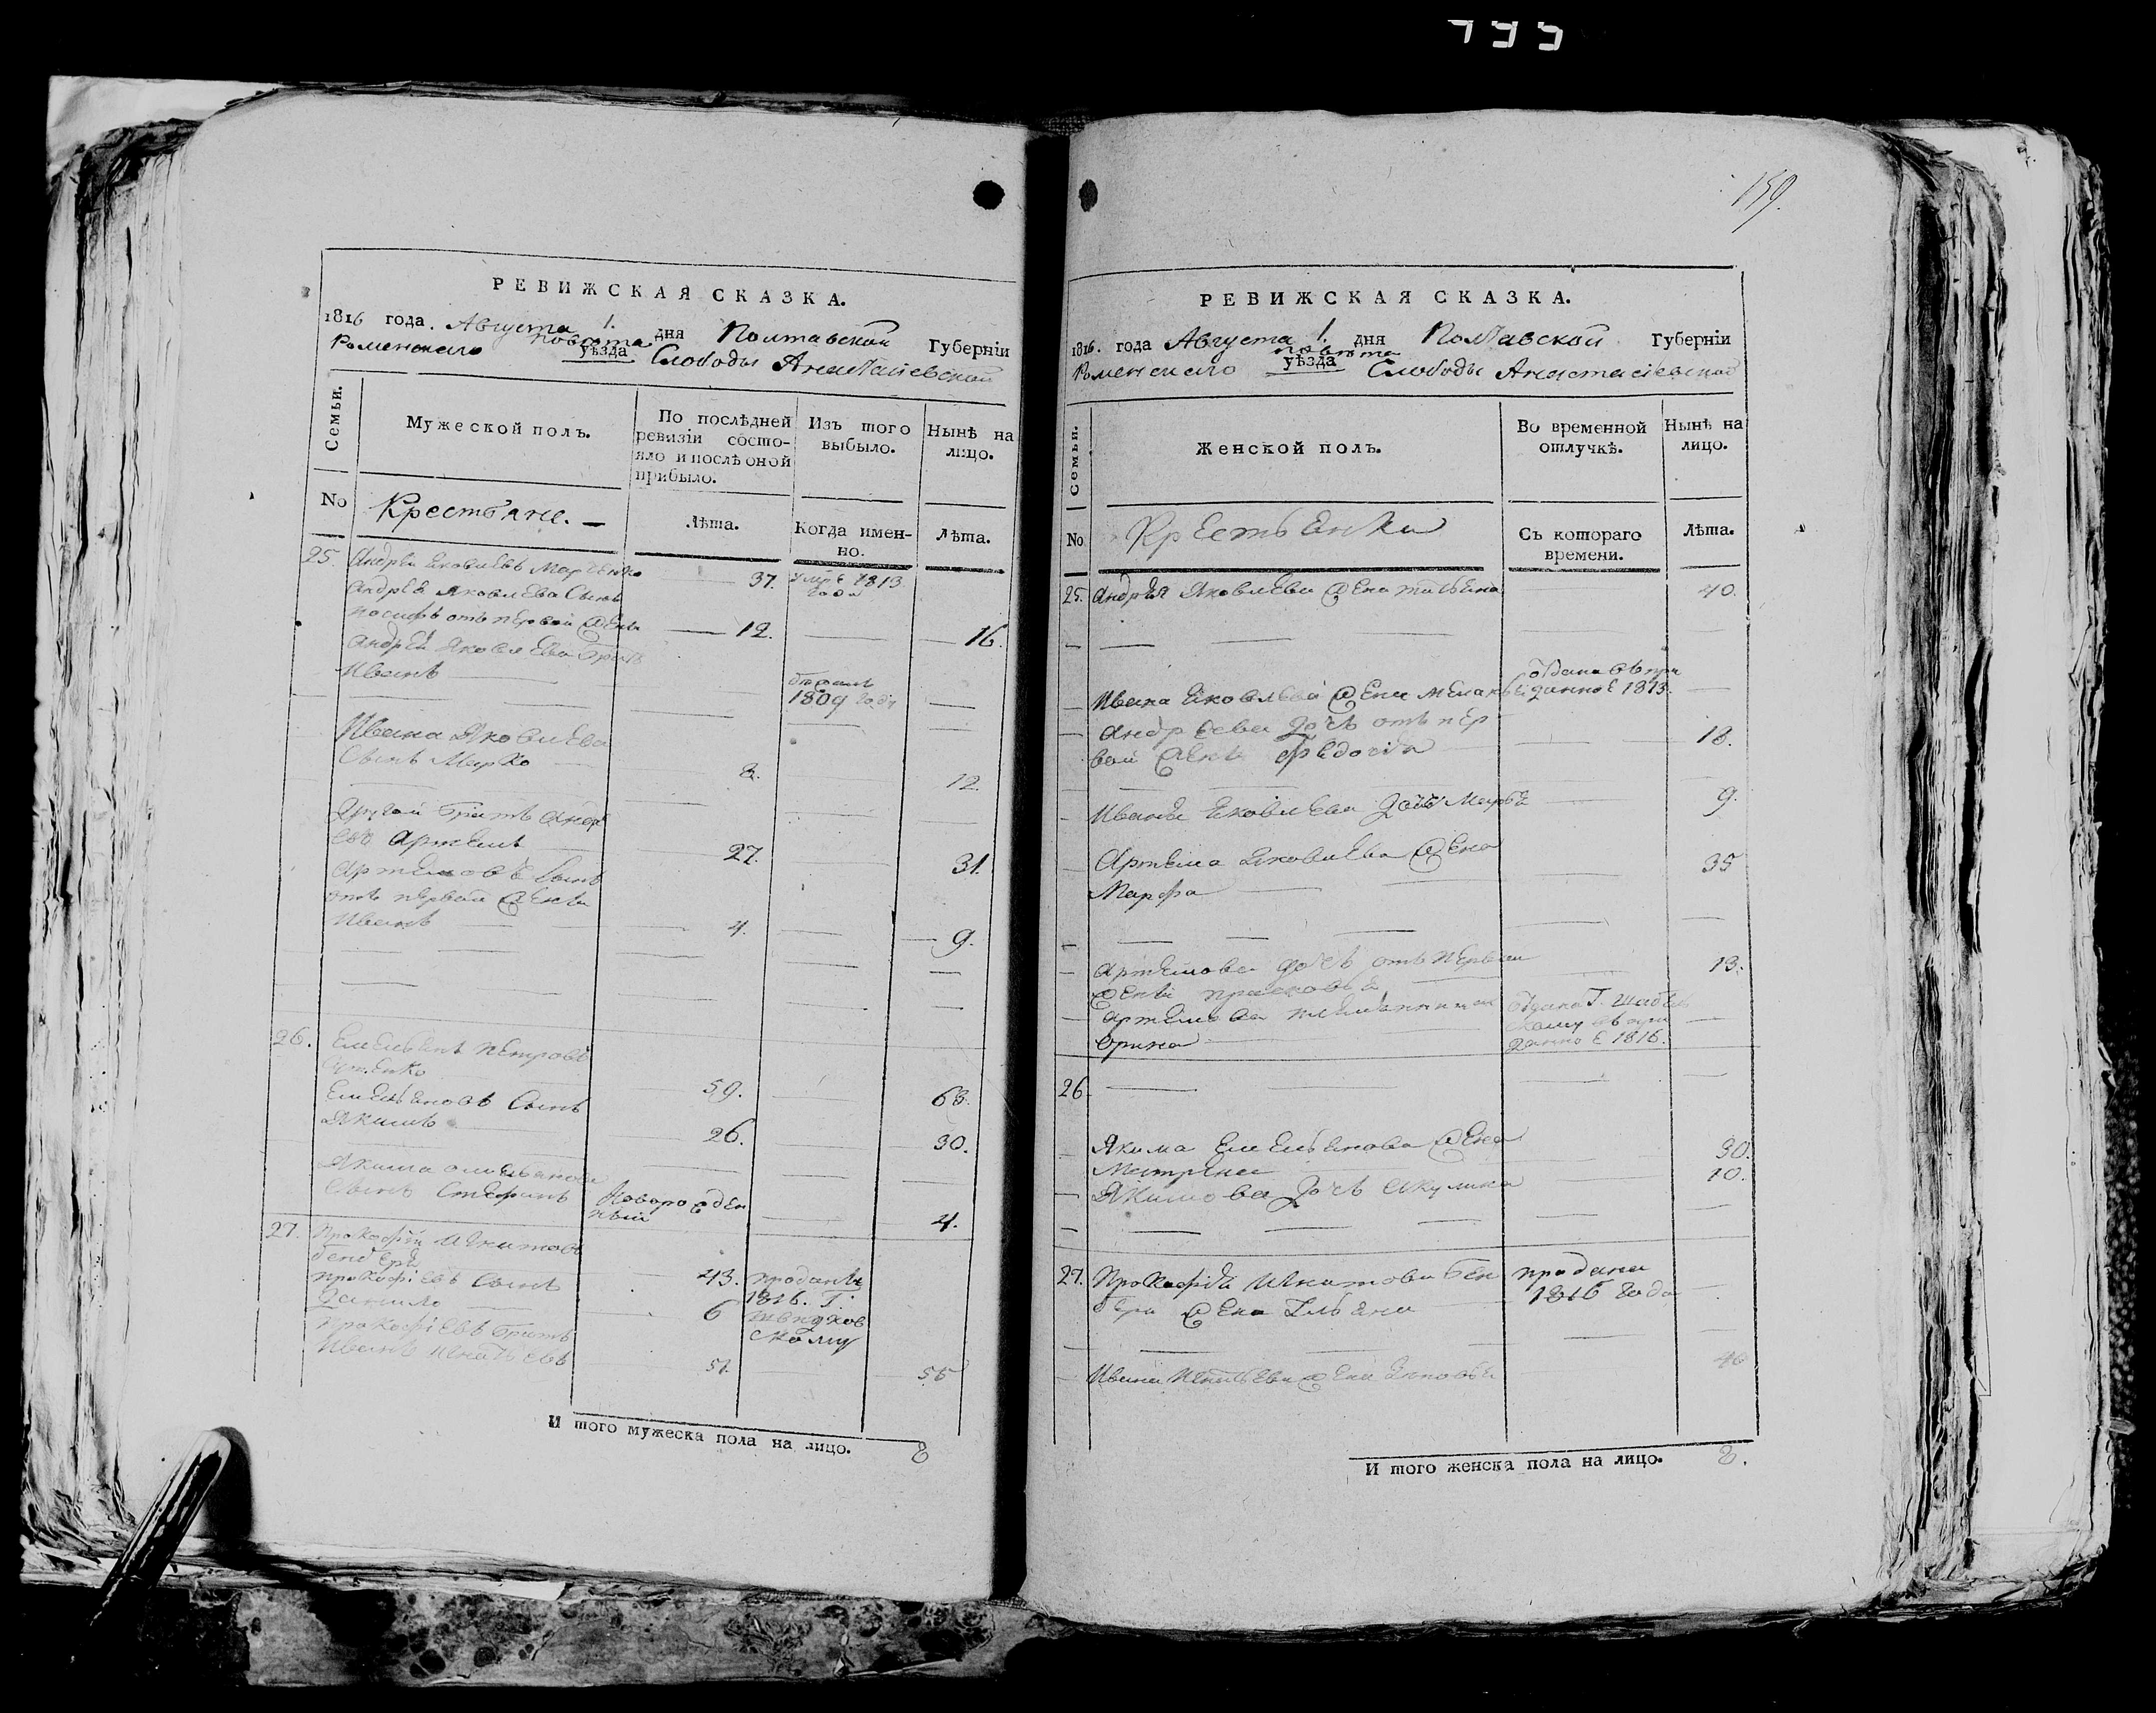 159.
РЕВИЖСКАЯ СКАЗКА.
1816 года. Августа 1. дня Полтавской Губерніи
повѣта
Роменского уѣзда Слободы Анастасіевской
Семьи.
Мужеской полъ.
По послѣдней
ревизіи состо-
яло и послѣ оной
прибыло.
Изъ того
выбыло.
Нынѣ на
лицо.
No
Крестьяне. —
Лѣта.
Когда имен-
но.
Лѣта.
25. Андрей Яковлевъ 37. умре 1813
года
Андрея Яковлева Сынъ
от первой жены 12. 16.
Андрея Яковлева братъ
Иванъ
1809 году
Ивана Яковлева
Сынъ Марко 8. 12.
Другой братъ Андре
евъ Артемъ 27. 31.
Артемовъ Сынъ
отъ первой жены
Иванъ 4. 9.
26. Емельянъ Петровъ
59. 63.
Емельяновъ Сынъ
Якимъ 26. 30.
Якима Омельянова
Сынъ Стефанъ Новорожден
ный 4.
27. Прокофій Игнатовъ
43. проданъ
Прокофіевъ Сынъ 1816. Г:
Данило 6
скому
Прокофіевъ братъ
Иванъ Игнатьевъ 51. 55
И того мужеска пола на лицо. 8
РЕВИЖСКАЯ СКАЗКА.
1816. года Августа 1. дня Полтавской Губерніи
повѣта
Роменского уѣзда Слободы Анастасіевской
Семьи.
Женской полъ.
Во временной
отлучкѣ.
Нынѣ на
лицо.
No
Крестьянки
Съ котораго
времени.
Лѣта.
25. Андрея Яковлева жена Татьяна 40.
отдана въ при
Ивана Яковлева жена даное 1813.
Андреева дочь отъ пер
вой жены Федосія 18.
Ивана Яковлева дочь Марья 9.
Артема Яковлева жена 35
Марфа
Артемова дочь отъ первой 13.
жены Прасковья
Артемова племянница отдана Г.
Орина скому въ при
даное 1816.
26
Якима Емельянова жена 30.
Матрена
Якимова дочь Акулина 10.
27. Прокофія Игнатова Бен продана
дера жена Ульяна 1816 года
Ивана Игнатьева жена 40
И того женска пола на лицо. 8.